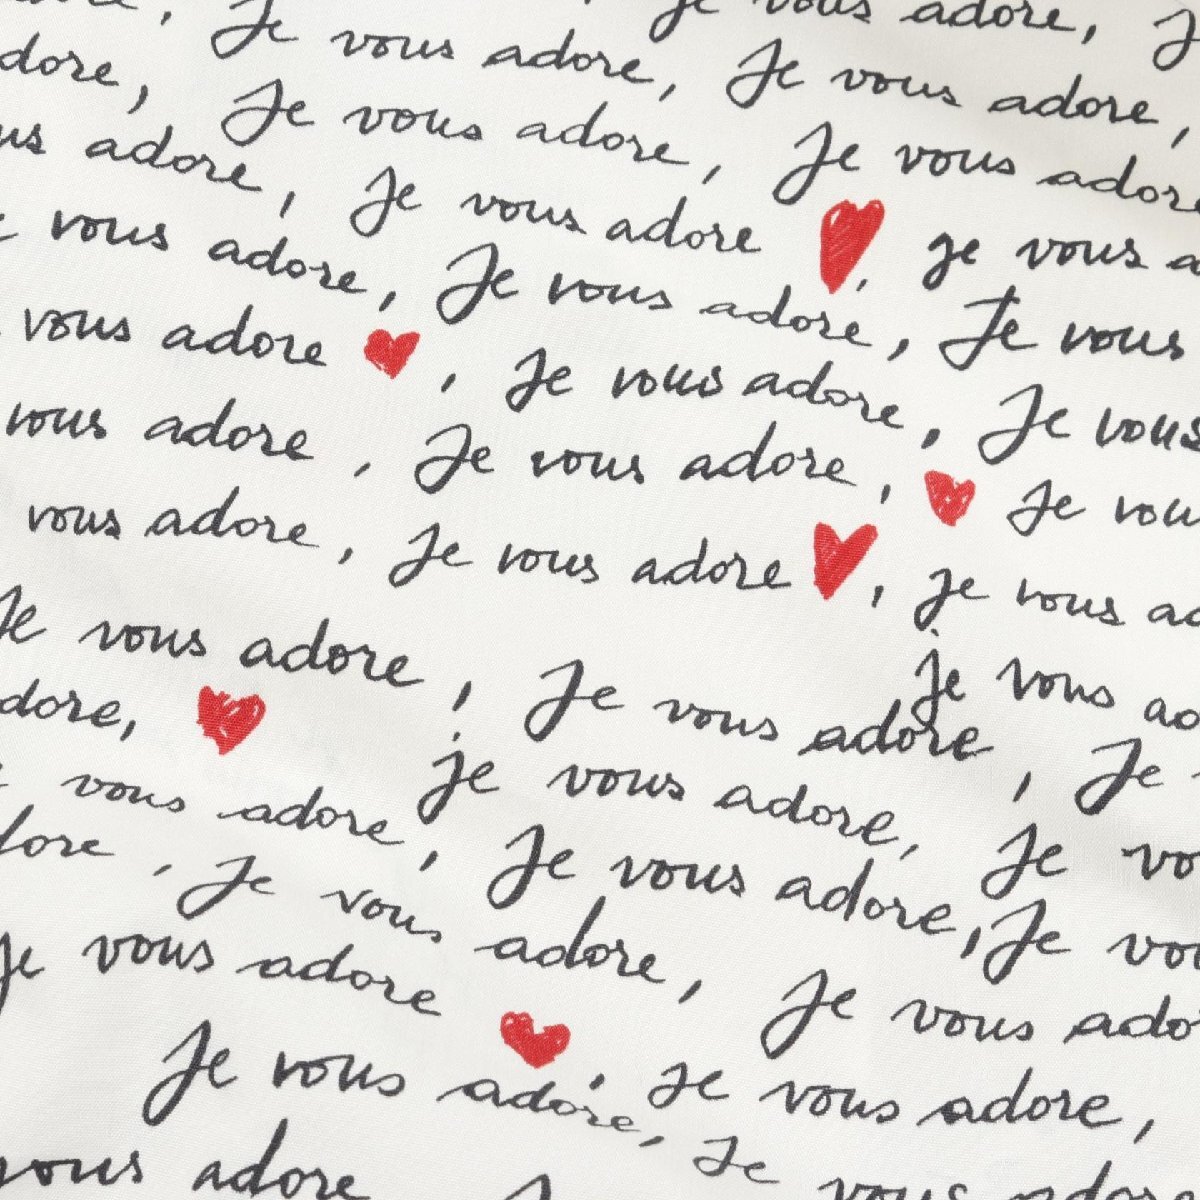 Je vous adore,
Je vous adore, Je vous adore,
adore, Je vous adore, Je vous adore
adore, Je vous adore, je vous
vous adore, Je vous adore, Je vous
vous adore, Je vous adore, Je vous
vous adore, Je vous adore, Je vous
vous adore, Je vous adore, je vous
je vous
Je vous adore, Je vous adore, Je
adore, je vous adore, Je
vous adore, Je vous adore, Je
Je vous adore, Je vous
Je vous adore, Je vous adore,
Je vous adore, Je vous adore
vous adore